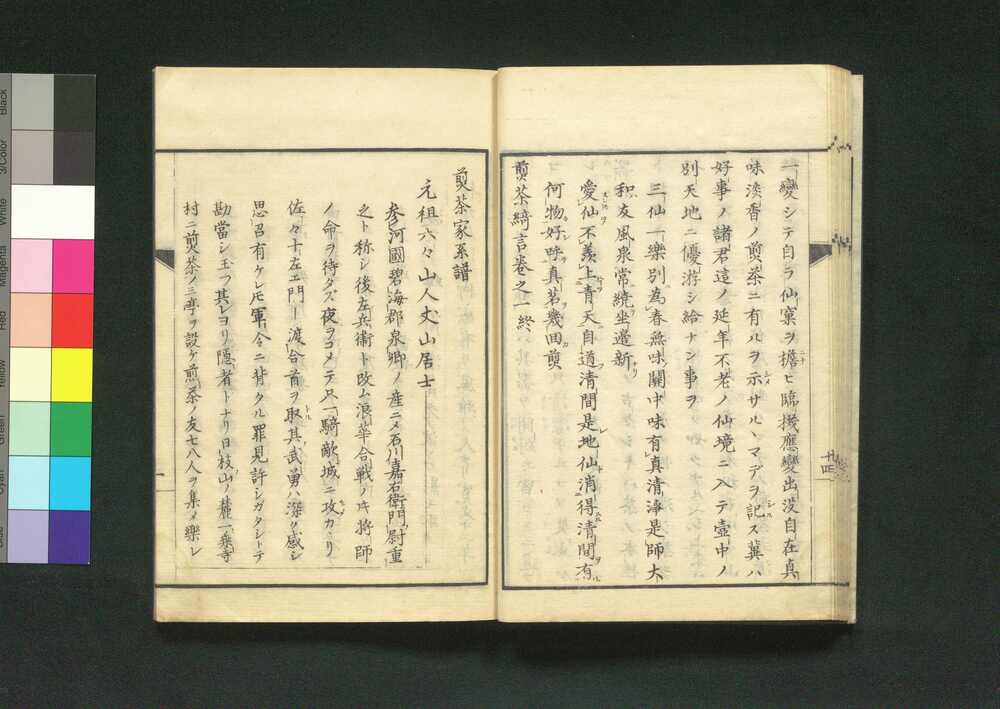 一變シテ自ラ仙寮ヲ擔ヒ臨機應變出没自在真
味淡香ノ煎茶ニ有ルヲ示サル丶マデヲ記ス冀ハ
好事ノ諸君這ノ延年不老ノ仙境ニ入テ壺中ノ
別天地ニ優游シ給ナン事ヲ
三仙一樂別為春無味關中味有真清浄是師大
和友風泉常繞坐邉新
愛仙不羨上青天自道清間是地仙消得清閒有
何物好呼真茗幾回煎
煎茶綺言巻之一終
十四
煎茶家系譜
元祖六々山人丈山居士
参河國碧海郡泉郷ノ産ニメ石川嘉右衛門尉重
之ト称シ後左兵衛ト改ム浪華合戦ノ時将師
ノ命ヲ待タズ夜ヲコメテ只一騎敵城ニ攻カヽリ
佐々十左エ門ト渡合首ヲ取其武勇ハ深ク感シ
思召有ケレ𪜈軍令ニ背タル罪見許シガタシトテ
勘當シ玉フ其レヨリ隠者トナリ日枝山ノ麓一乗寺
村ニ煎茶ノ三亭ヲ設ケ煎茶ノ友七八人ヲ集メ樂レ
一
Black
3/Color
White
Magenta
Red
Yellow
Green
Cyan